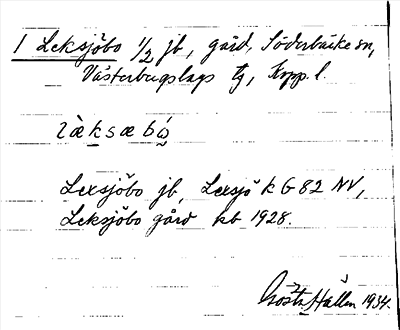 1 Leksjöbo 1/2 jb, gård, Söderbärke sn,
Västerbergslags tg, Kopp. l.
læ̀ksæbó̤
Lexsjöbo jb, Lersjö k G 82 NV,
Leksjöbo gård kb 1928.
Gösta Hallén 1934.